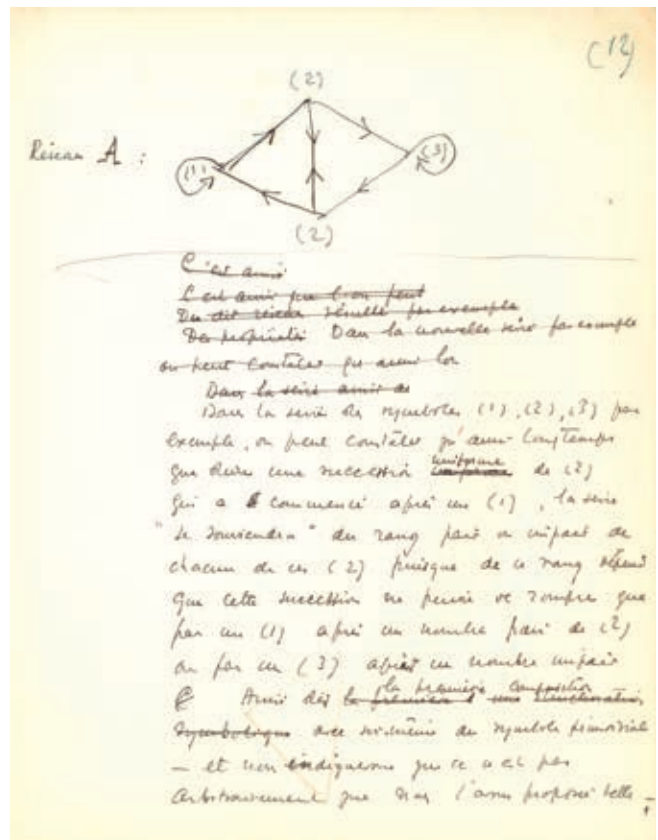 (12)
(2)
Réseau A :
(1)
(3)
(2)
C'est ainsi
C'est ainsi que l'on peut
Du dit réseau résulte par exemple
Des propriétés Dans la nouvelle série par exemple
on peut constater qu'aussi lon
Dans la série ainsi
Dans la série des symboles (1), (2), (3) par
exemple, on peut constater qu'aussi longtemps
que dure une succession uniforme de (2)
qui a commencé après un (1), la série
"se souviendra" du rang pair ou impair de
chacun de ces (2) puisque de ce rang dépend
que cette succession ne puisse se rompre que
par un (1) après un nombre pair de (2)
ou par un (3) après un nombre impair
Ainsi dès la première composition
symbolique avec soi-même du symbole primordial
— et nous indiquerons que ce n'est pas
arbitrairement que nous l'avons proposée telle —